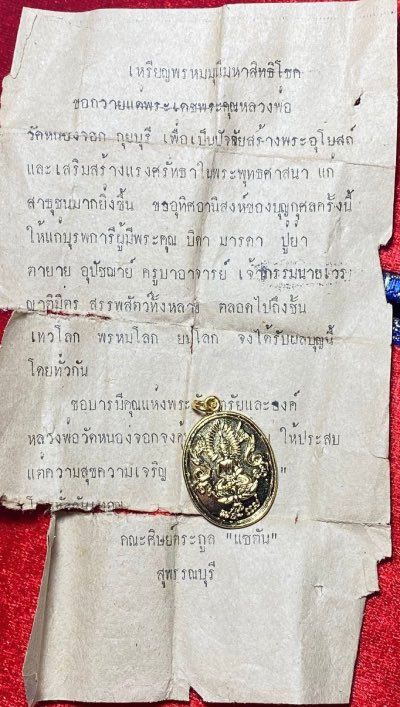 เหรียญพรหมมุนีมหาสิทธิโชค
ขอถวายแด่พระเดชพระคุณหลวงพ่อ
วัดหนองจอก กุยบุรี เพื่อเป็นปัจจัยสร้างพระอุโบสถ์
และเสริมสร้างแรงศรัทธาในพระพุทธศาสนา แก่
สาธุชนมากยิ่งขึ้น ขออุทิศอานิสงห์ของบุญกุศลครั้งนี้
ให้แก่บุรพการีผู้มีพระคุณ บิดา มารดา ปู่ย่า
ตายาย อุปัชฌาย์ ครูบาอาจารย์ เจ้ากรรมนายเวร
ญาติมิตร สรรพสัตว์ทั้งหลาง ตลอดไปถึงชั้น
เทวโลก พรหมโลก ยมโลก จงได้รับผลบุญนี้
โดยทั่วกัน
ขอบารมีคุณแห่งพระ รัยและองค์
หลวงพ่อวัดหนองจอกจง ให้ประสบ
แต่ความสุขความเจริญ "
คณะศิษย์ตระกูล "แซ่ตัน"
สุพรรณบุรี